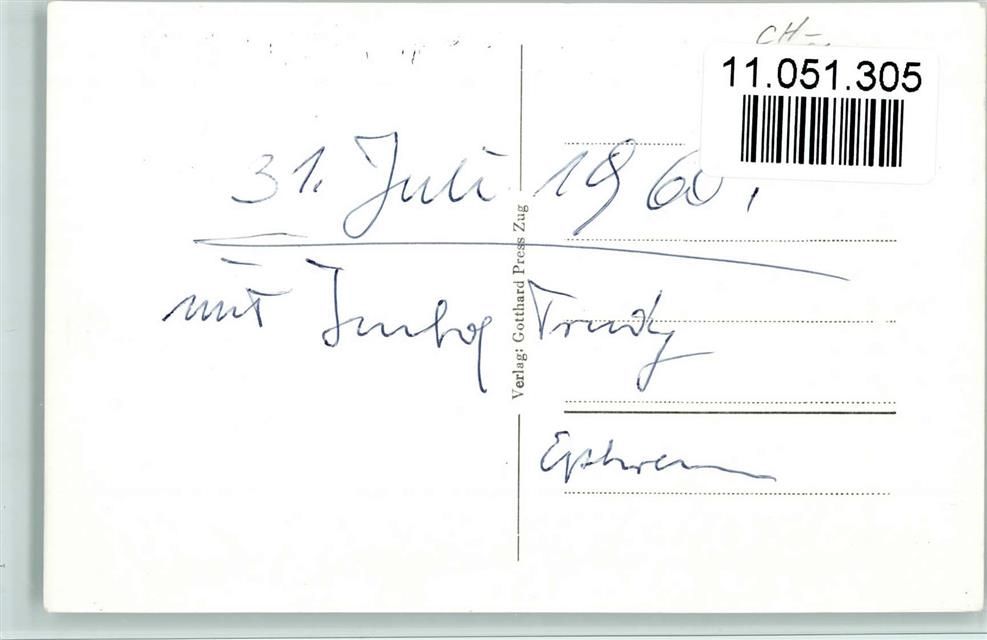 CH-
11.051.305
31. Juli 1960.
mit Imhof Trudy
Ephrem
Verlag: Gotthard Press Zug